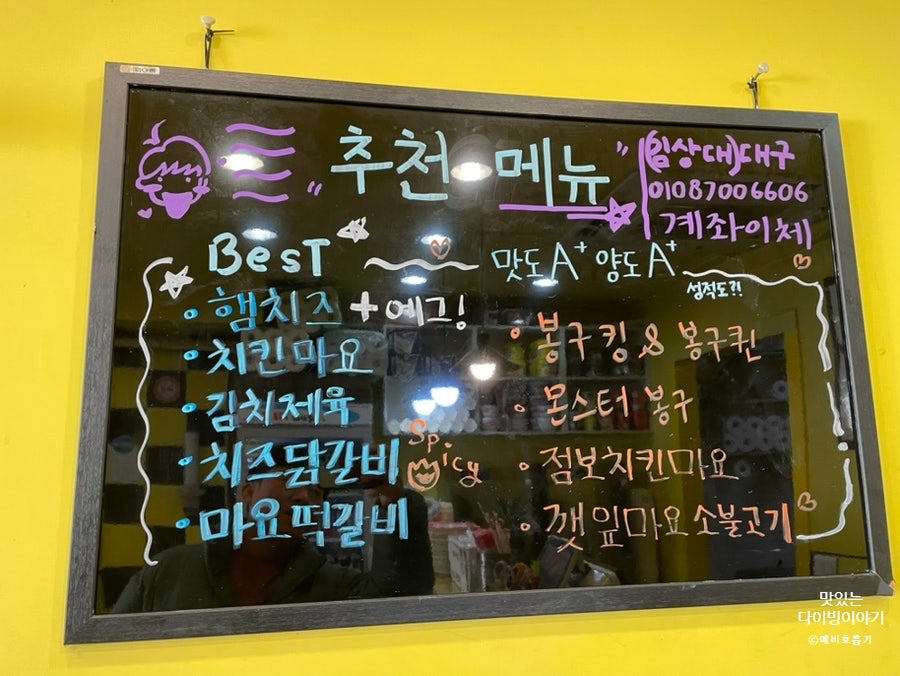 "추천 메뉴"
(임상대)대구
01087006606
계좌이체
BesT
• 햄치즈 + 에그!
• 치킨마요
• 김치제육
• 치즈닭갈비
Sp.icy
• 마요떡갈비
맛도 A+ 양도 A+
성적도?!
• 봉구킹 & 봉구퀸
• 몬스터 봉구
• 점보치킨마요
• 깻잎마요 소불고기
맛있는
다이빙이야기
©예비호흡기